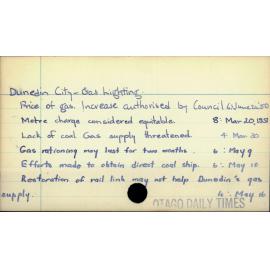 Dunedin City - Gas Lighting.
Price of gas. Increase authorised by Council 6: June 21 '50
Metre charge considered equitable. 8: Mar 20, 1951
Lack of coal Gas supply threatened. 4 Mar 30
Gas rationing may last for two months. 6: May 9
Efforts made to obtain direct coal ship. 6: May 12
Restoration of rail link may not help Dunedin's gas
supply. 4: May 16
OTAGO DAILY TIMES